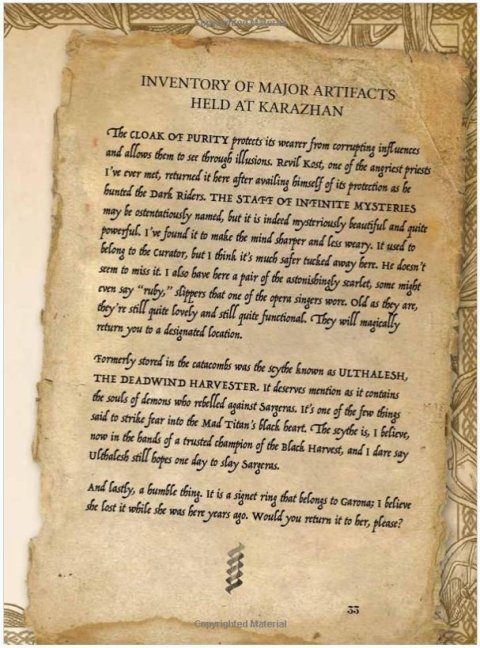 Copyrighted Material
INVENTORY OF MAJOR ARTIFACTS
HELD AT KARAZHAN
The CLOAK OF PURITY protects its wearer from corrupting influences
and allows them to see through illusions. Revil Kost, one of the angriest priests
I've ever met, returned it here after availing himself of its protection as he
hunted the Dark Riders. THE STAFF OF INFINITE MYSTERIES
may be ostentatiously named, but it is indeed mysteriously beautiful and quite
powerful. I've found it to make the mind sharper and less weary. It used to
belong to the Curator, but I think it's much safer tucked away here. He doesn't
seem to miss it. I also have here a pair of the astonishingly scarlet, some might
even say "ruby," slippers that one of the opera singers wore. Old as they are,
they're still quite lovely and still quite functional. They will magically
return you to a designated location.
Formerly stored in the catacombs was the scythe known as ULTHALESH,
THE DEADWIND HARVESTER. It deserves mention as it contains
the souls of demons who rebelled against Sargeras. It's one of the few things
said to strike fear into the Mad Titan's black heart. The scythe is, I believe,
now in the hands of a trusted champion of the Black Harvest, and I dare say
Ulthalesh still hopes one day to slay Sargeras.
And lastly, a humble thing. It is a signet ring that belongs to Garona; I believe
she lost it while she was here years ago. Would you return it to her, please?
33
Copyrighted Material